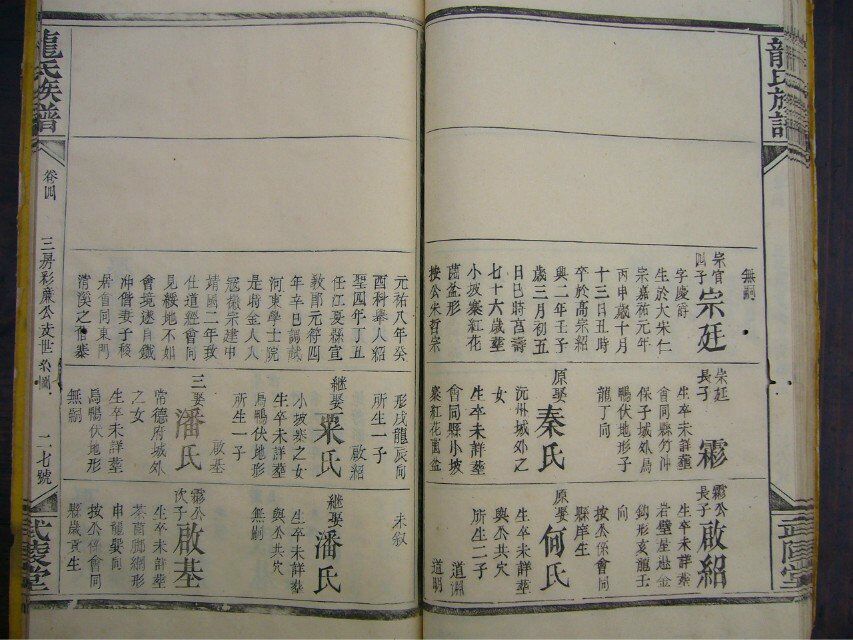 龍氏族譜
無嗣
宗官
四子
宗廷
字慶爵
生於大宋仁
宗嘉祐元年
丙申歲十月
十三日丑時
卒於高宗紹
興二年壬子
歲三月初五
日巳時享壽
七十六歲葬
小坡寨紅花
菌盆形
按公宋哲宗
元祐八年癸
酉科舉人紹
聖四年丁丑
任江夏縣宣
教郎元符四
年辛巳賜
河東學士院
是時金人入
冦徽宗建中
靖國二年致
仕道經會同
見綏地不如
會境遂自鐵
冲偕妻子移
居會同東門
清溪之宿
宗廷
長子
霖
生卒未詳葬
會同縣竹冲
保子城外烏
鴨伏地形子
龍丁向
原娶
秦氏
沅州城外之
女
生卒未詳葬
會同縣小坡
寨紅花菌盆
形戌龍辰向
所生一子
啟紹
繼娶
粟氏
小坡寨之女
生卒未詳葬
烏鴨伏地形
所生一子
啟基
三娶
潘氏
常德府城外
之女
生卒未詳葬
烏鴨伏地形
無嗣
霖公
長子
啟紹
生卒未詳葬
岩壁星
鈎形亥龍壬
向
按公係會同
縣庠生
原娶
何氏
生卒未詳葬
與公共穴
所生二子
道淵
道明
未叙
繼娶
潘氏
生卒未詳葬
與公共穴
無嗣
霖公
次子
啟基
生卒未詳葬
茶菌脚獅形
申龍
向
按公係會同
縣歲貢生
龍氏族譜
卷四
三房彩廉公支世系圖
二七號
武陵堂
武陵堂